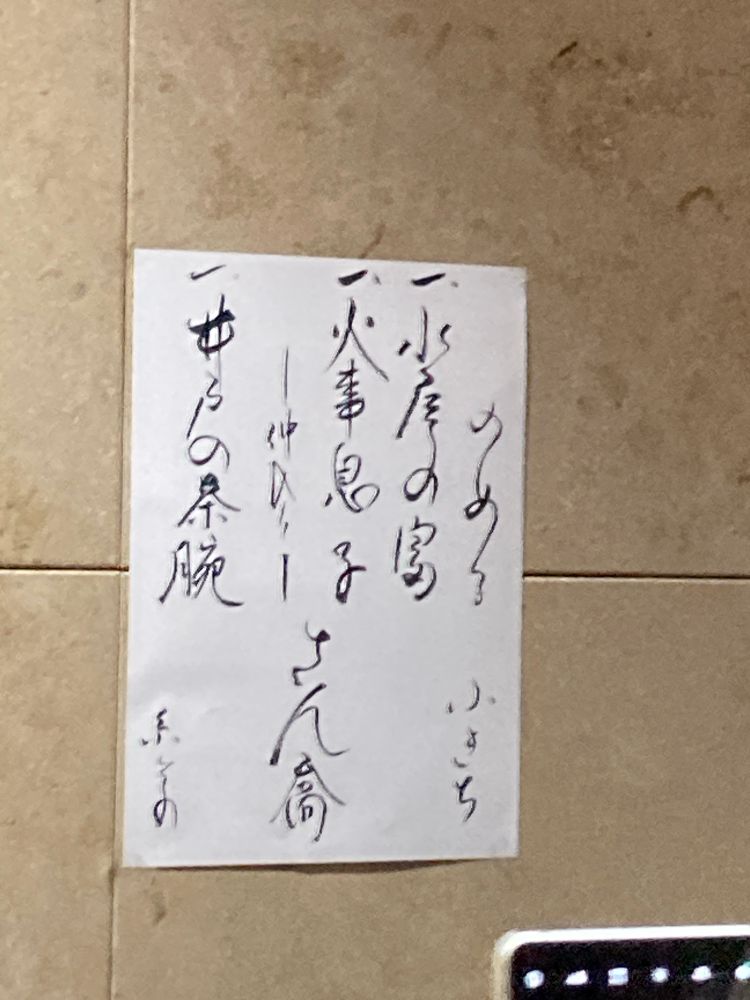 のめる 小きち
一、水屋の富
一、火事息子 さん喬
ー仲入りー
一、井戸の茶碗